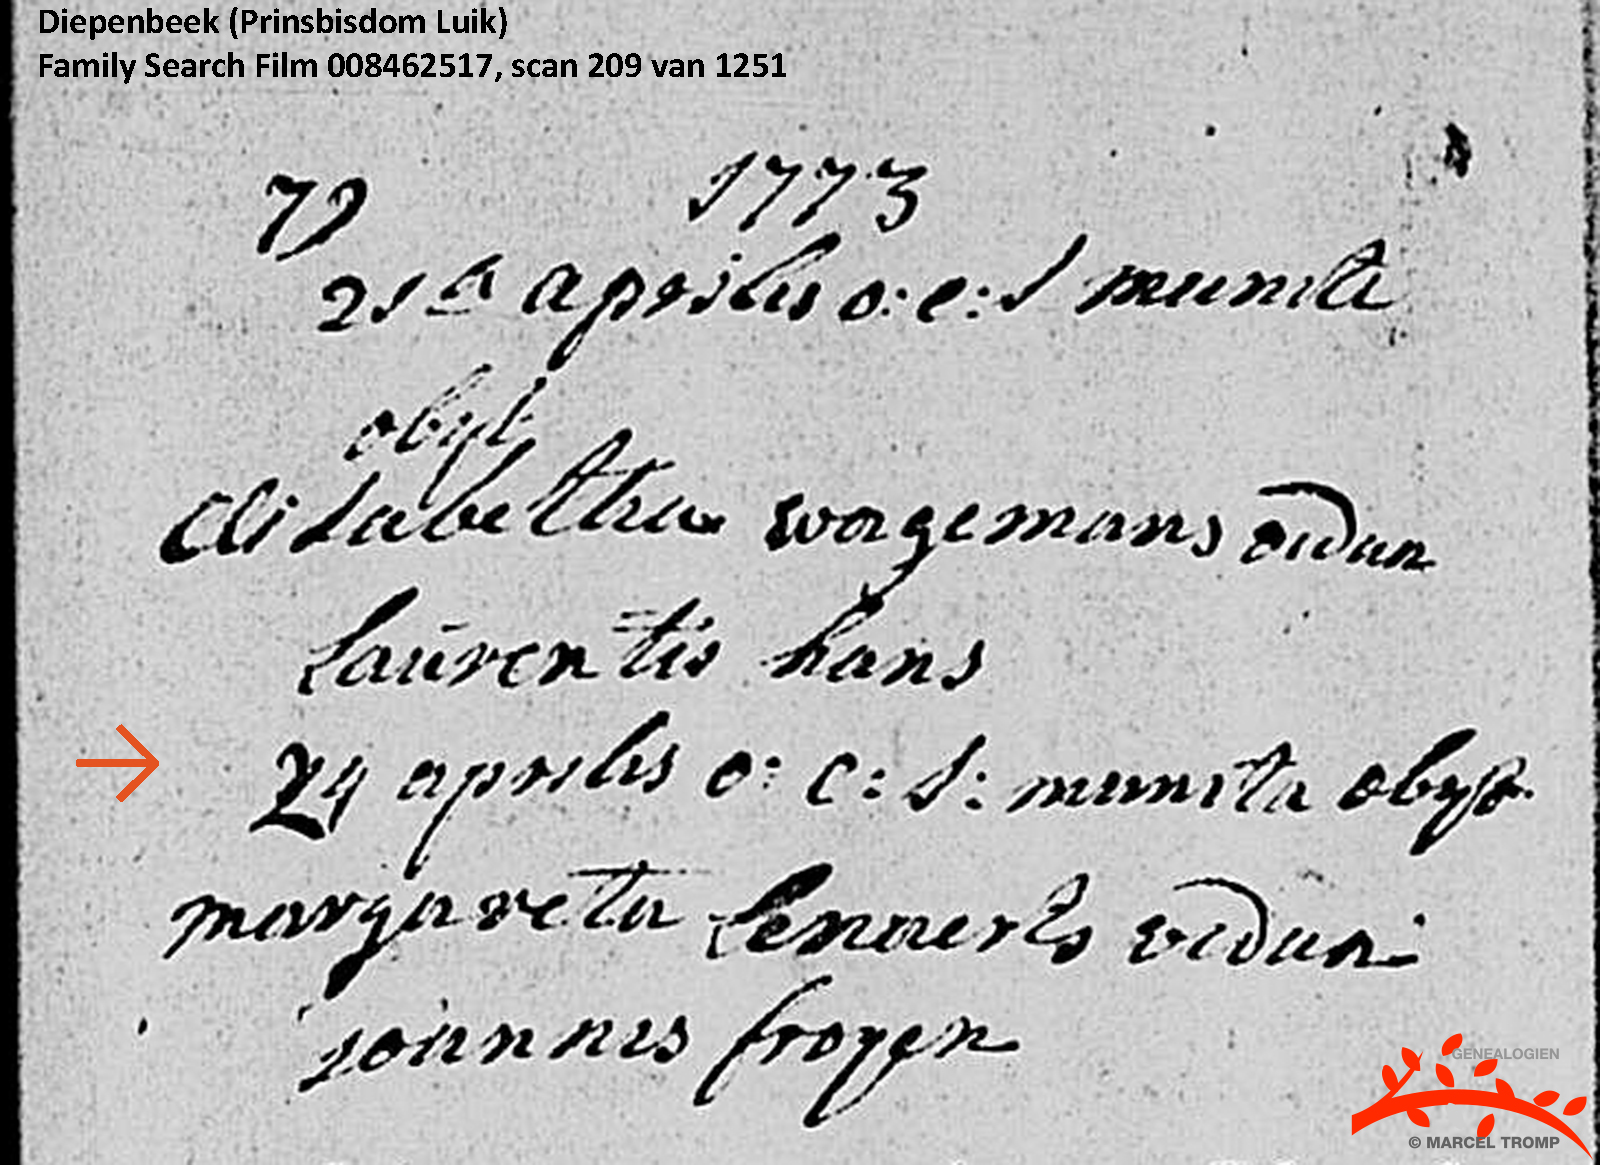 Diepenbeek (Prinsbisdom Luik)
Family Search Film 008462517, scan 209 van 1251
79 1773
21a aprilis o: e: s munita
obyt
Elisabetha wagemans vidua
laŭrentis hans
24 aprilis o: e: s: munita obyt
margareta Lenaerts vidua
joannis froyen
GENEALOGIEN
© MARCEL TROMP